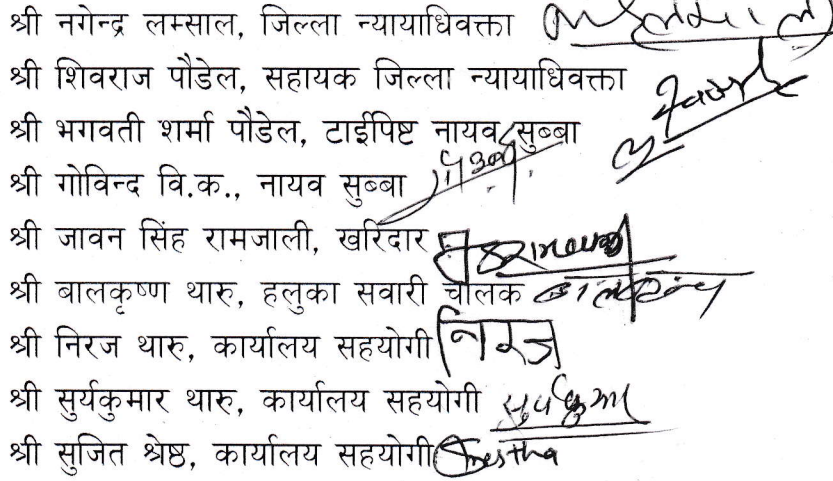 श्री नगेन्द्र लम्साल, जिल्ला न्यायाधिवक्ता
श्री शिवराज पौडेल, सहायक जिल्ला न्यायाधिवक्ता
श्री भगवती शर्मा पौडेल, टाईपिष्ट नायव सुब्बा
श्री गोविन्द वि.क., नायव सुब्बा
श्री जावन सिंह रामजाली, खरिदार
श्री बालकृष्ण थारु, हलुका सवारी चालक
श्री निरज थारु, कार्यालय सहयोगी निरज
श्री सुर्यकुमार थारु, कार्यालय सहयोगी सुर्यकुमा
श्री सुजित श्रेष्ठ, कार्यालय सहयोगी Shrestha